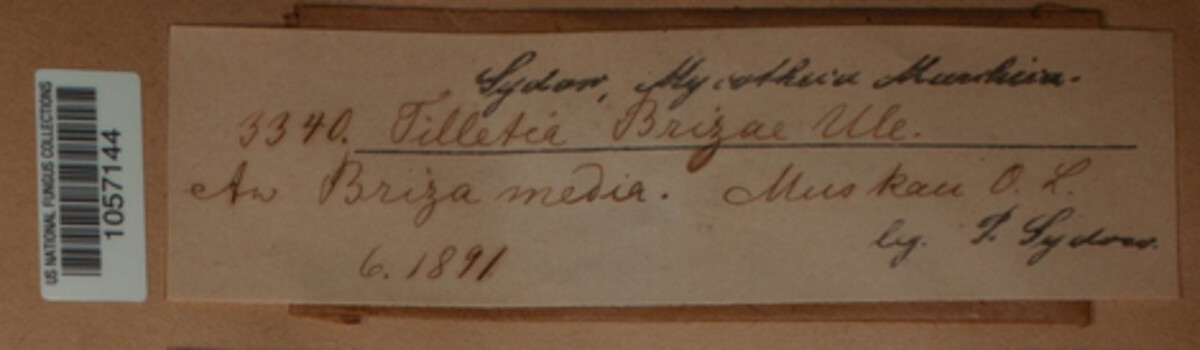 US NATIONAL FUNGUS COLLECTIONS
1057144
Sydow, Mycotheca Marchica.
3340. Tilletia Brizae Ule.
An Briza media. Muskau O. L.
leg. P. Sydow.
6. 1891